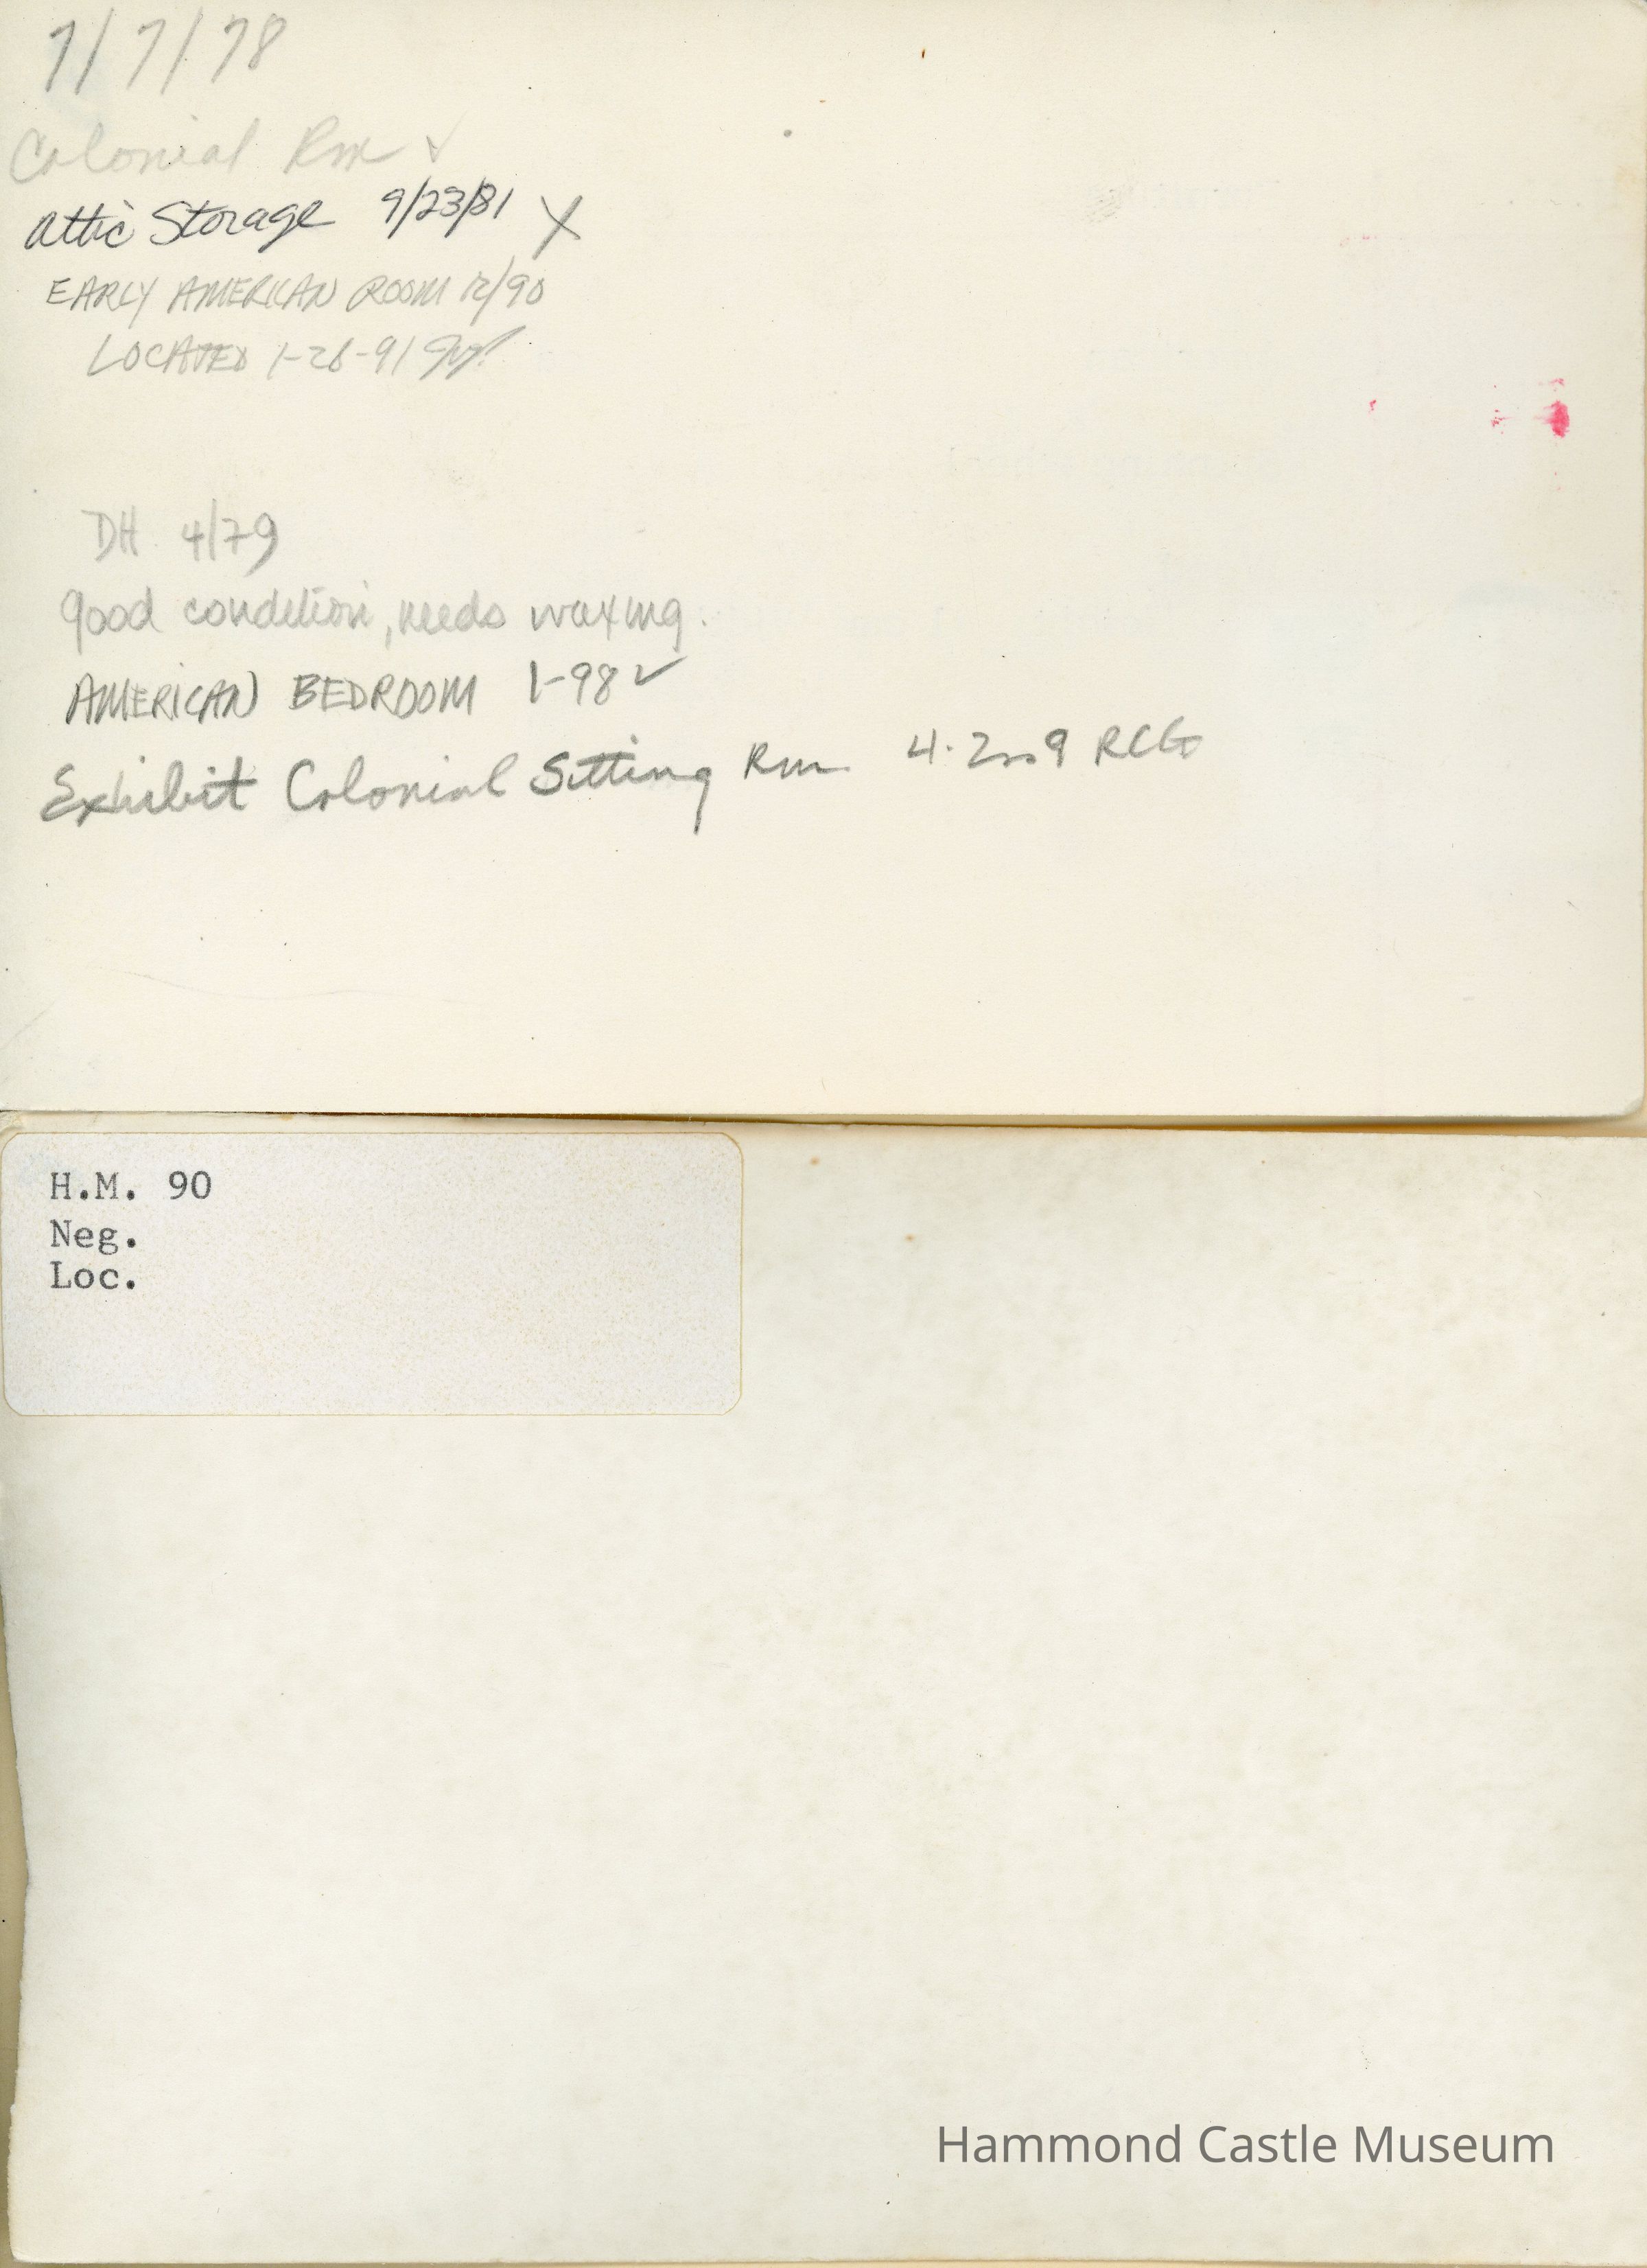 7/7/78
Colonial Rm ✓
Attic Storage 9/23/81 X
EARLY AMERICAN ROOM 12/90
LOCATED 1-28-91
DH 4/79
good condition, needs waxing.
AMERICAN BEDROOM 1-98 ✓
Exhibit Colonial Sitting Rm 4-2009 RCG
H.M. 90
Neg.
Loc.
Hammond Castle Museum